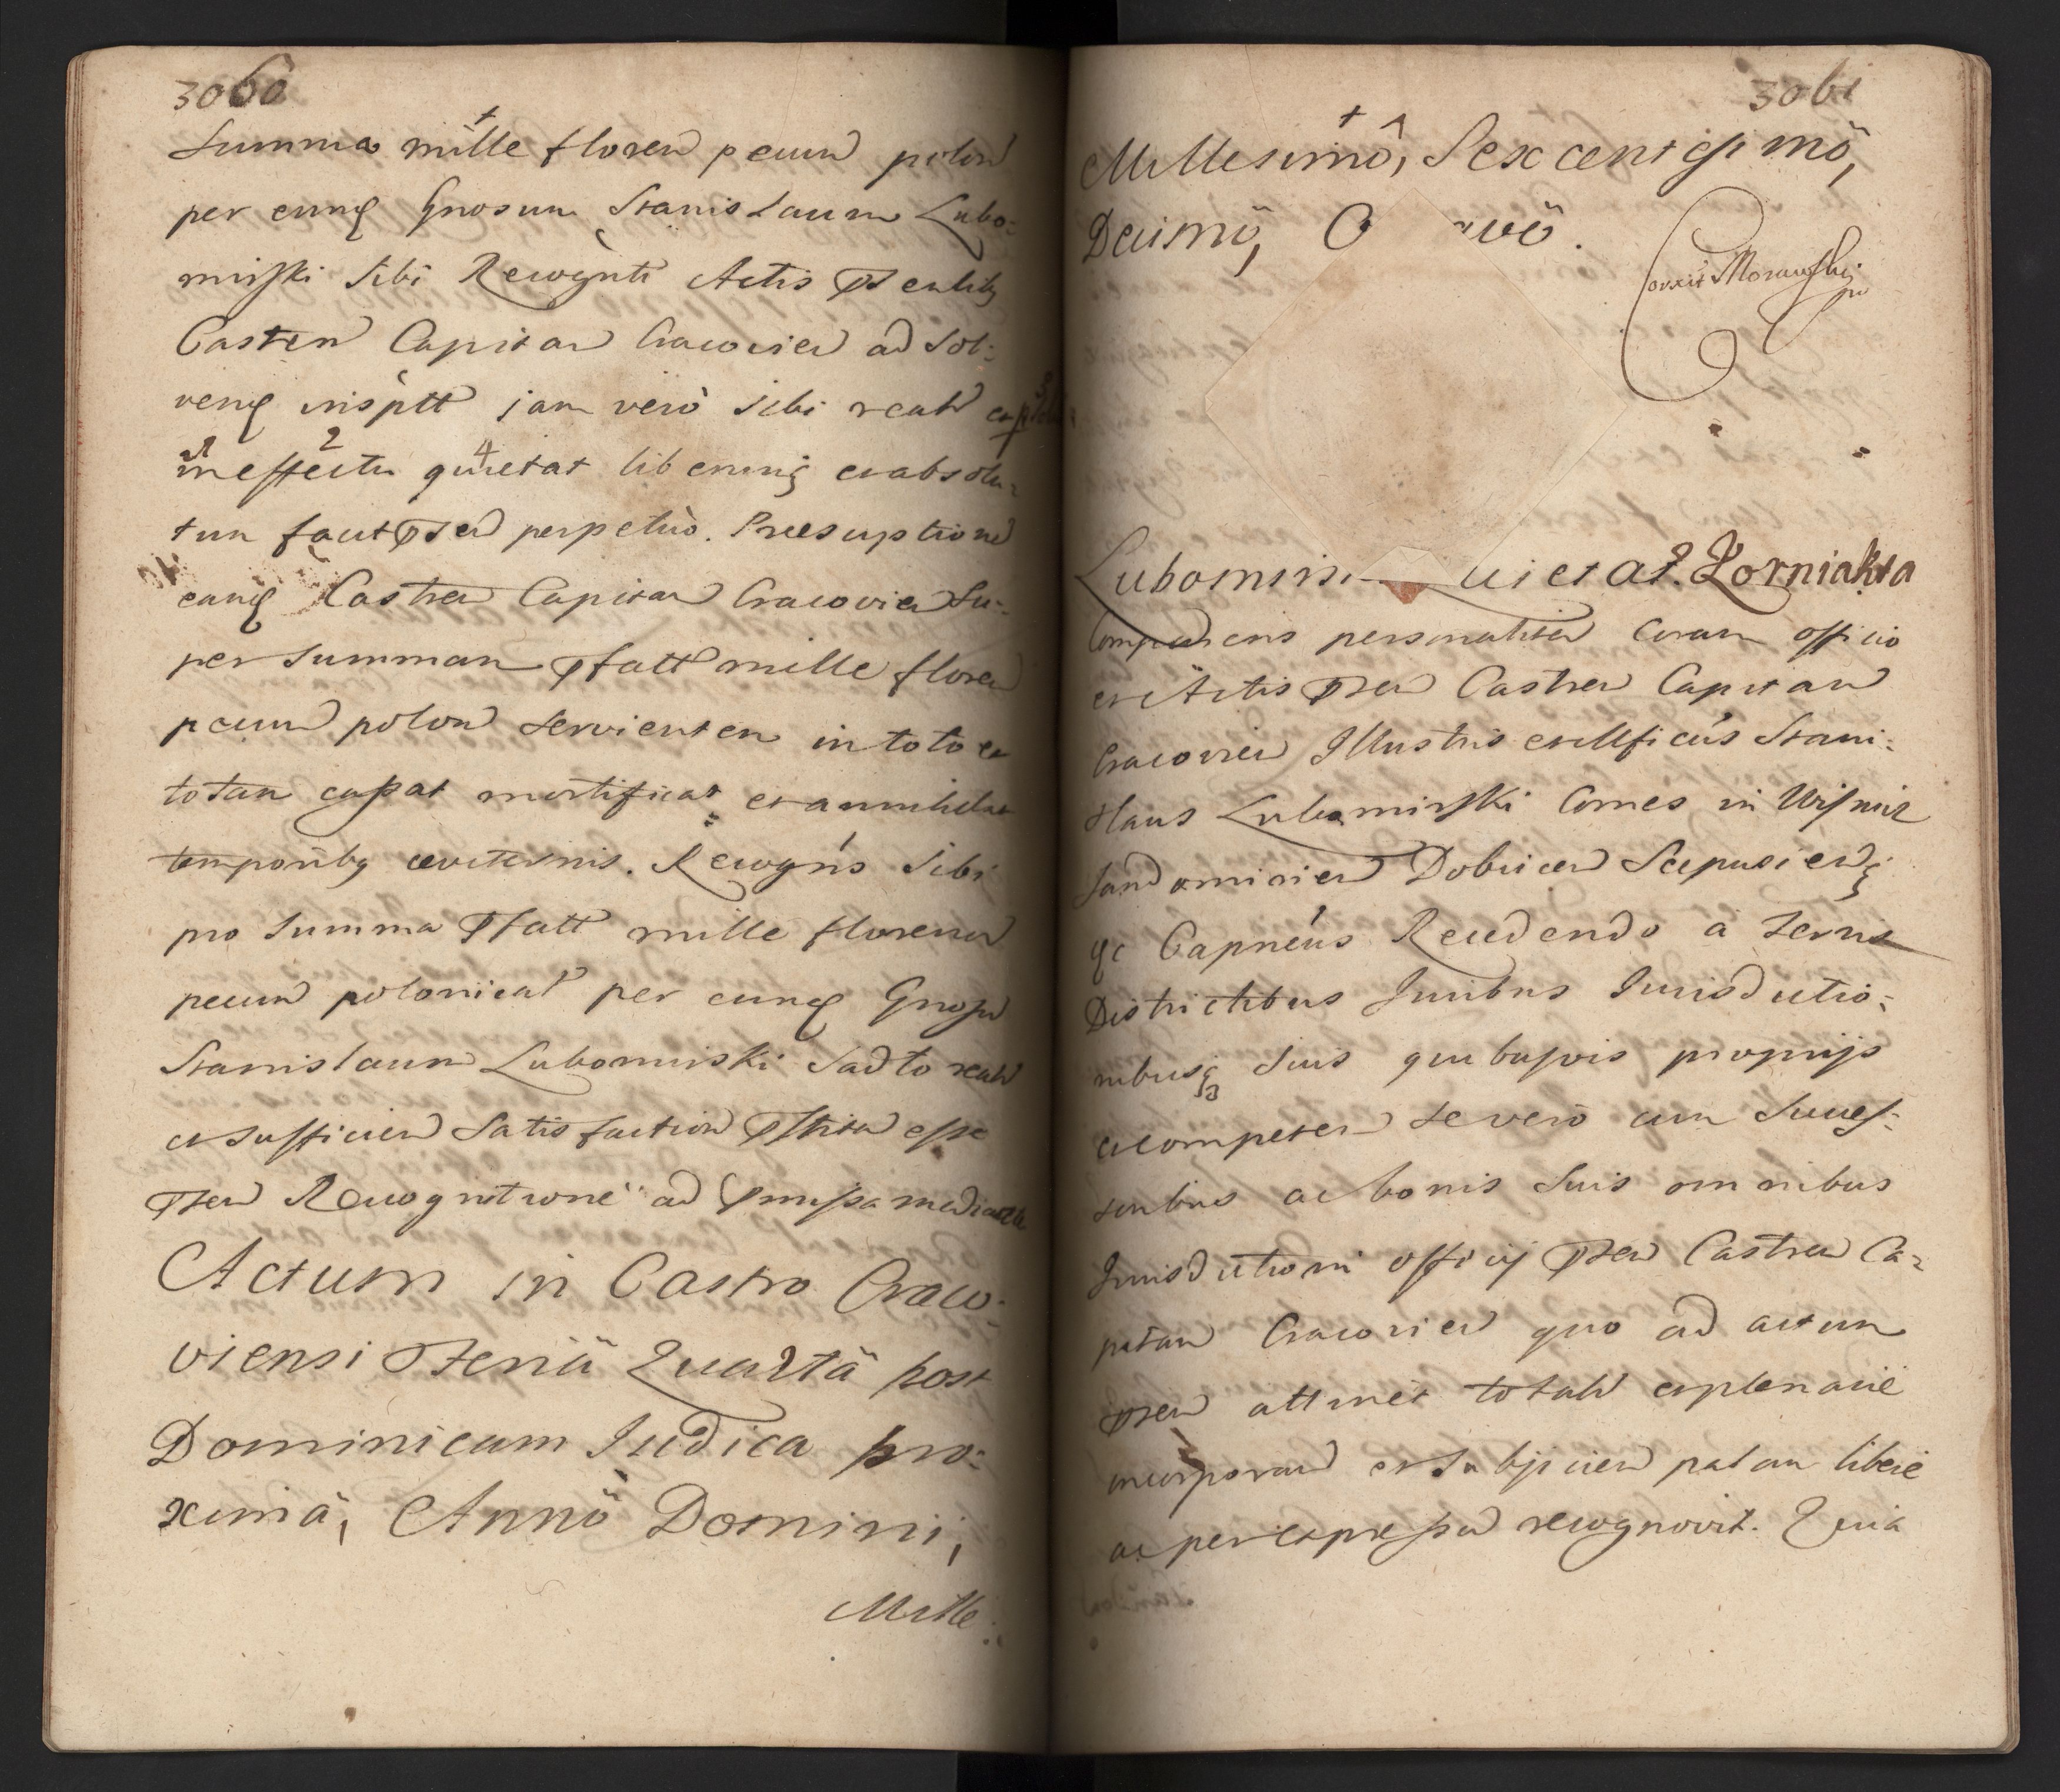 3060
Summa mille floren pecun polon
per eunq Gnosum Stanislaum Lubo:
mirski sibi Recognti Actis
Castren Capitan Cracovien ad Sol:
venq insptt jam verò sibi realr
in effectu quietat liberumq et absolu:
tum facit perpetuò.
eanq Castren Capitan Cracovien Su:
per Summam pfatt mille floren
pecun polon servientem in toto et
totam cassat mortificat et annihilat
temporibq aeviternis. Recogns sibi
pro Summa pfatt mille floren
pecun polonical per eunq Gnosu
Stanislaum Lubomirski
et sufficien Satisfaction esse
Recognitione ad praemissa mediante
Actum in Castro Craco:
viensi Feriâ Quartâ post
Dominicam Iudica pro:
ximâ, Annô Domini,
Mille:
3061
Millesimô, Sexcentesimô,
Decimô, O vô.
Corrxit Morawski
Lubomirs uietat. Zorniakta
Comparens personaliter Coram officio
et Actis pten Castren Capitan
Cracovien Illustris et Mficus Stani:
slaus Lubomirski Comes in Wisnicz
Sandomirien Dobricen Scepusienq
Capneus Recedendo à Terris
Districtibus Juribus Jurisdictio:
nibusq Suis quibusvis proprijs
ac competen se verò cum Succes:
soribus ac bonis Suis omnibus
Jurisdictioni officij pten Castren Ca:
pitan Cracovien quo ad actum
pten attinet totalr et plenariè
incorporan et Subjicien palam liberè
ac per expressum recognovit. Quia